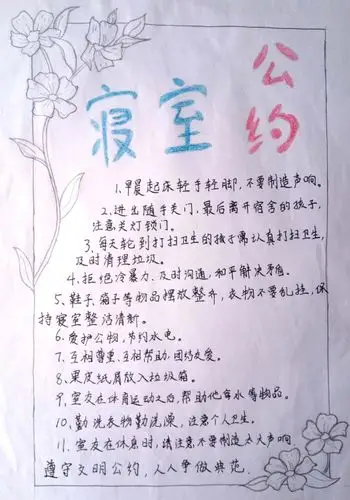 寝室公约
1、早晨起床轻手轻脚，不要制造声响。
2、进出随手关门、最后离开宿舍的孩子，
注意关灯锁门。
3、每天轮到打扫卫生的孩子需认真打扫卫生，
及时清理垃圾。
4、拒绝冷暴力、及时沟通，和平解决矛盾。
5、鞋子、箱子等物品摆放整齐，衣物不要乱挂，保
持寝室整洁清新。
6、爱护公物，节约水电。
7、互相尊重、互相帮助，团结友爱。
8、果皮纸屑放入垃圾箱。
9、室友在体育运动之后，帮助他拿水等物品。
10、勤洗衣物勤洗澡，注意个人卫生。
11、室友在休息时，请注意不要制造太大声响
遵守文明公约，人人争做典范.